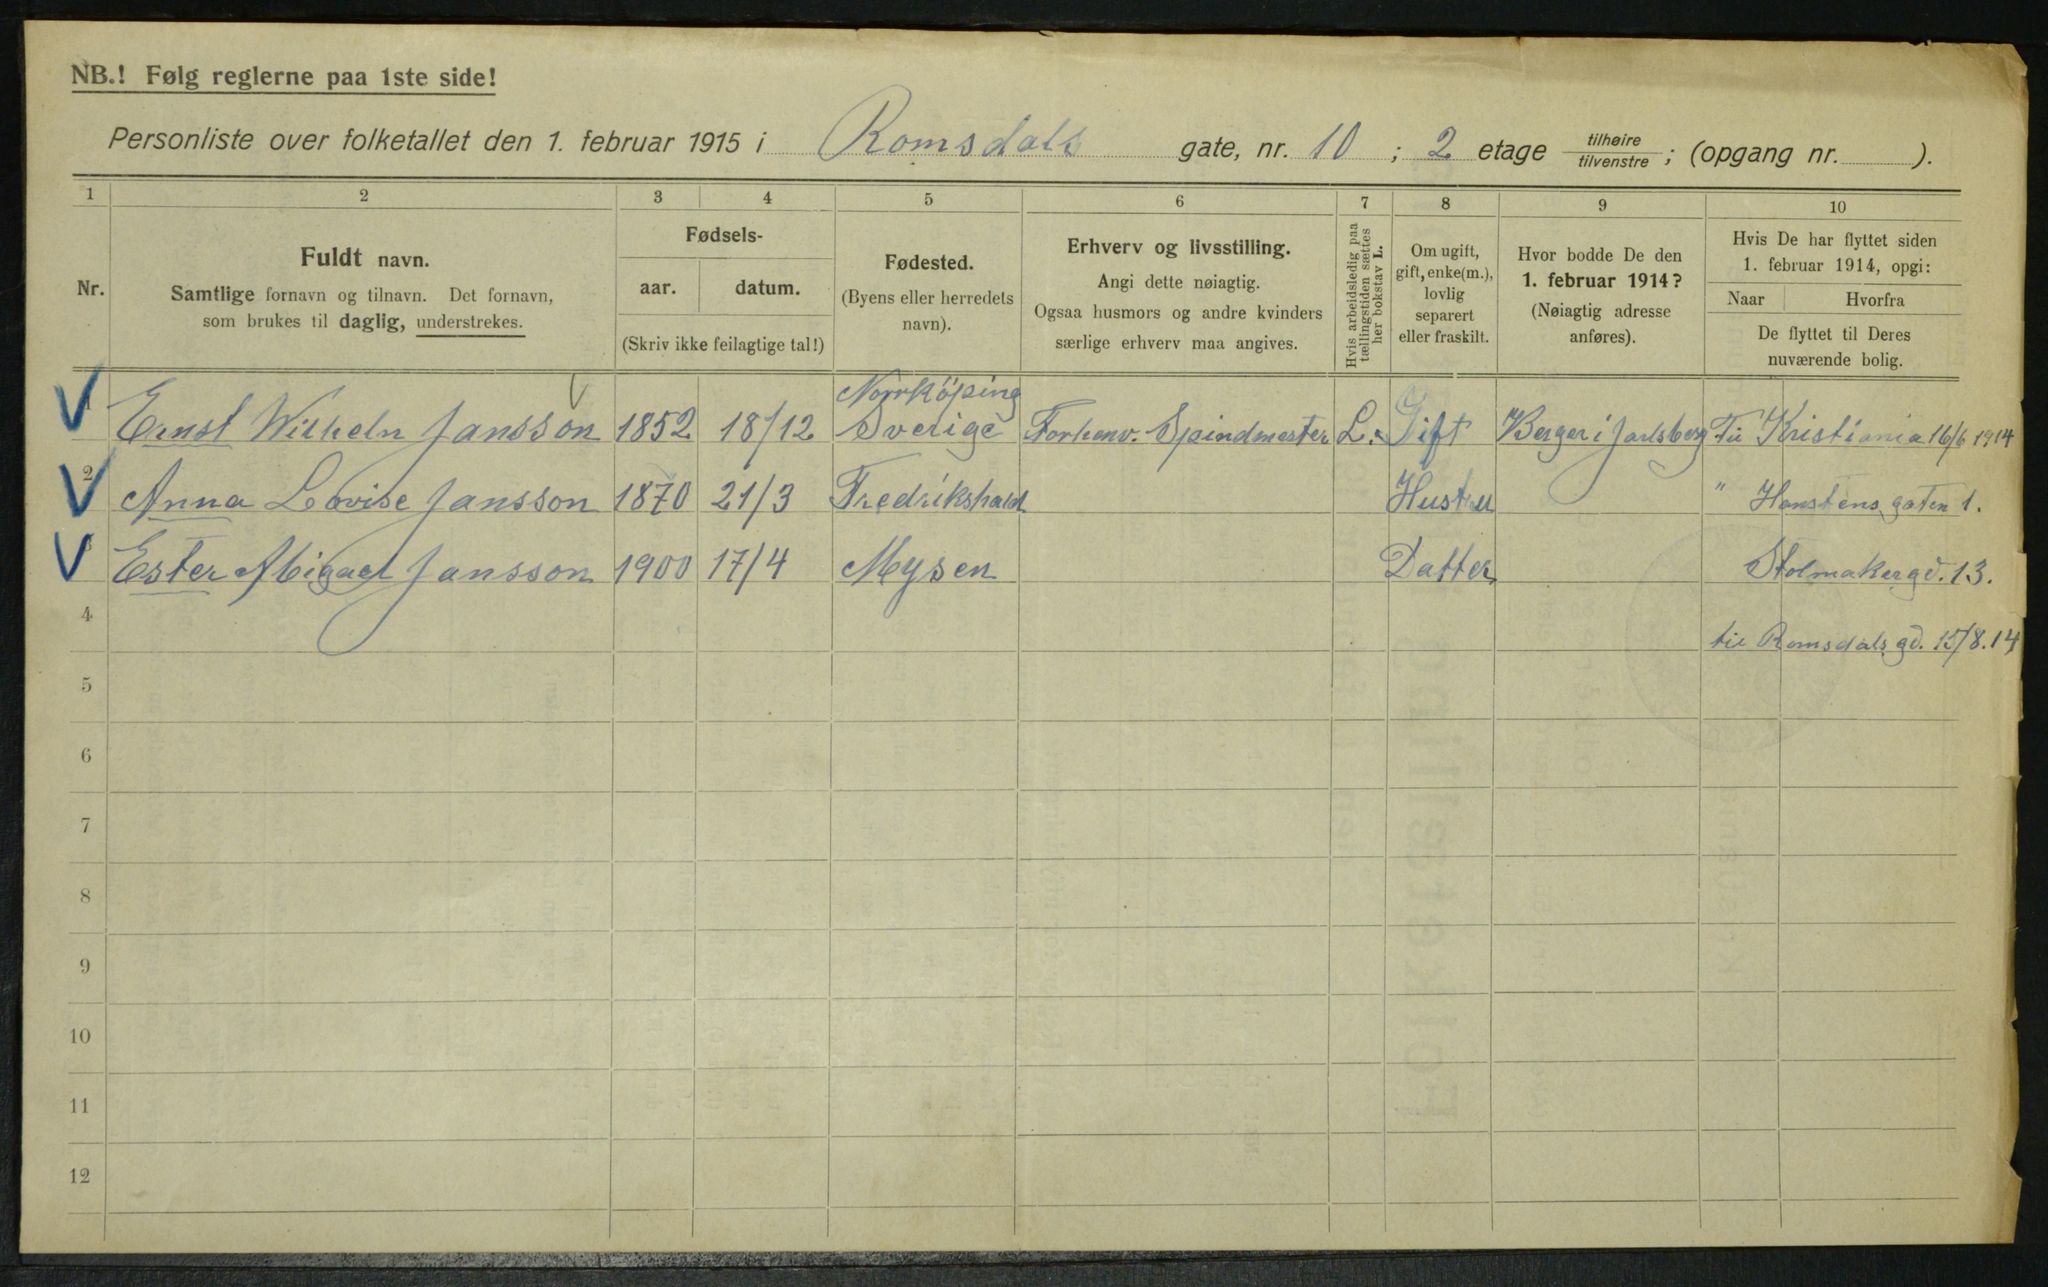 NB.! Følg reglerne paa 1ste side!
Personliste over folketallet den 1. februar 1915 i Romsdals gate, nr. 10 ; 2 etage tilhøire tilvenstre ; (opgang nr. ).
1 2 3 4 5 6 7 8 9 10
Nr.
Fuldt navn.
Samtlige fornavn og tilnavn. Det fornavn,
som brukes til daglig, understrekes.
Fødsels-
aar. datum.
(Skriv ikke feilagtige tal!)
Fødested.
(Byens eller herredets
navn).
Erhverv og livsstilling.
Angi dette nøiagtig.
Ogsaa husmors og andre kvinders
særlige erhverv maa angives.
Hvis arbeidsledig paa
tællingstiden sættes
her bokstav L.
Om ugift,
gift, enke(m.),
lovlig
separert
eller fraskilt.
Hvor bodde De den
1. februar 1914?
(Nøiagtig adresse
anføres).
Hvis De har flyttet siden
1. februar 1914, opgi:
Naar Hvorfra
De flyttet til Deres
nuværende bolig.
1 Ernst Wilheln Jansson 1852 18/12 Norrköping Sverige Forhenv. Spindmester L. Gift Berger i Jarlsberg Til Kristiania 16/6 1914
2 Anna Lovise Jansson 1870 21/3 Fredrikshald Hustru " Henstens gaten 1.
3 Ester Abigael Jansson 1900 17/4 Mysen Datter Stolmakergd. 13.
4 til Romsdals gd. 15/8.14
5
6
7
8
9
10
11
12